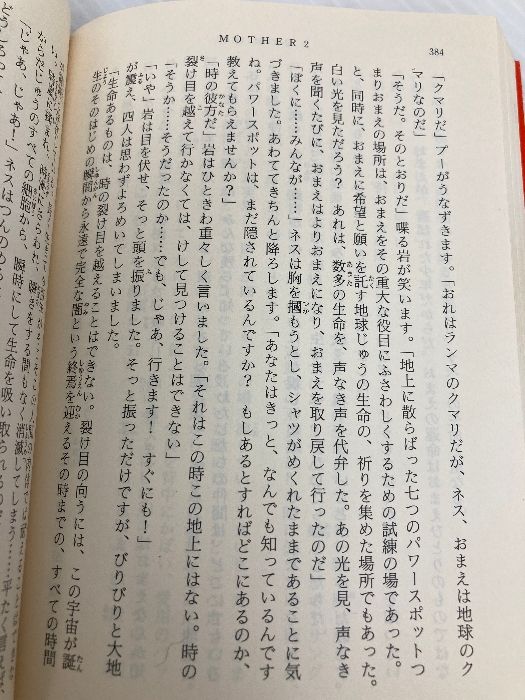 MOTHER 2
384
「クマリだ」プーがうなずきます。「おれはランマのクマリだが、ネス、おまえは地球のク
マリなのだ」
「そうだ。そのとおりだ」喋る岩が笑います。「地上に散らばった七つのパワースポットつ
まりおまえの場所は、おまえをその重大な役目にふさわしくするための試練の場であった。
と、同時に、おまえに希望と願いを託す地球じゅうの生命の、祈りを集めた場所でもあった。
白い光を見ただろう？　あれは、数多の生命を、声なき声を代弁した。あの光を見、声なき
声を聞くたびに、おまえはよりおまえになり、おまえを取り戻して行ったのだ」
「ぼくに……みんなが……」ネスは胸を摑もうとし、シャツがめくれたままであることに気
づきました。あわててきちんと降ろします。「あなたはきっと、なんでも知っているんです
ね。パワースポットは、まだ隠されているんですか？　もしあるとすればどこにあるのか、
教えてもらえませんか？」
「時の彼方だ」岩はひときわ重々しく言いました。「それはこの時この地上にはない。時の
裂け目を越えて行かなくては、けして見つけることはできない」
「そうか……そうだったのか……でも、じゃあ、行きます！　すぐにも！」
「いや」岩は目を伏せ、そっと頭を振りました。そっと振っただけですが、びりびりと大地
が震え、四人は思わずよろめいてしまいました。
「生命あるものは、時の裂け目を越えることはできない。裂け目の向うには、この宇宙が誕
生のそのはじめの瞬間から永遠で完全な闇という終焉を迎えるその時までの、すべての時間